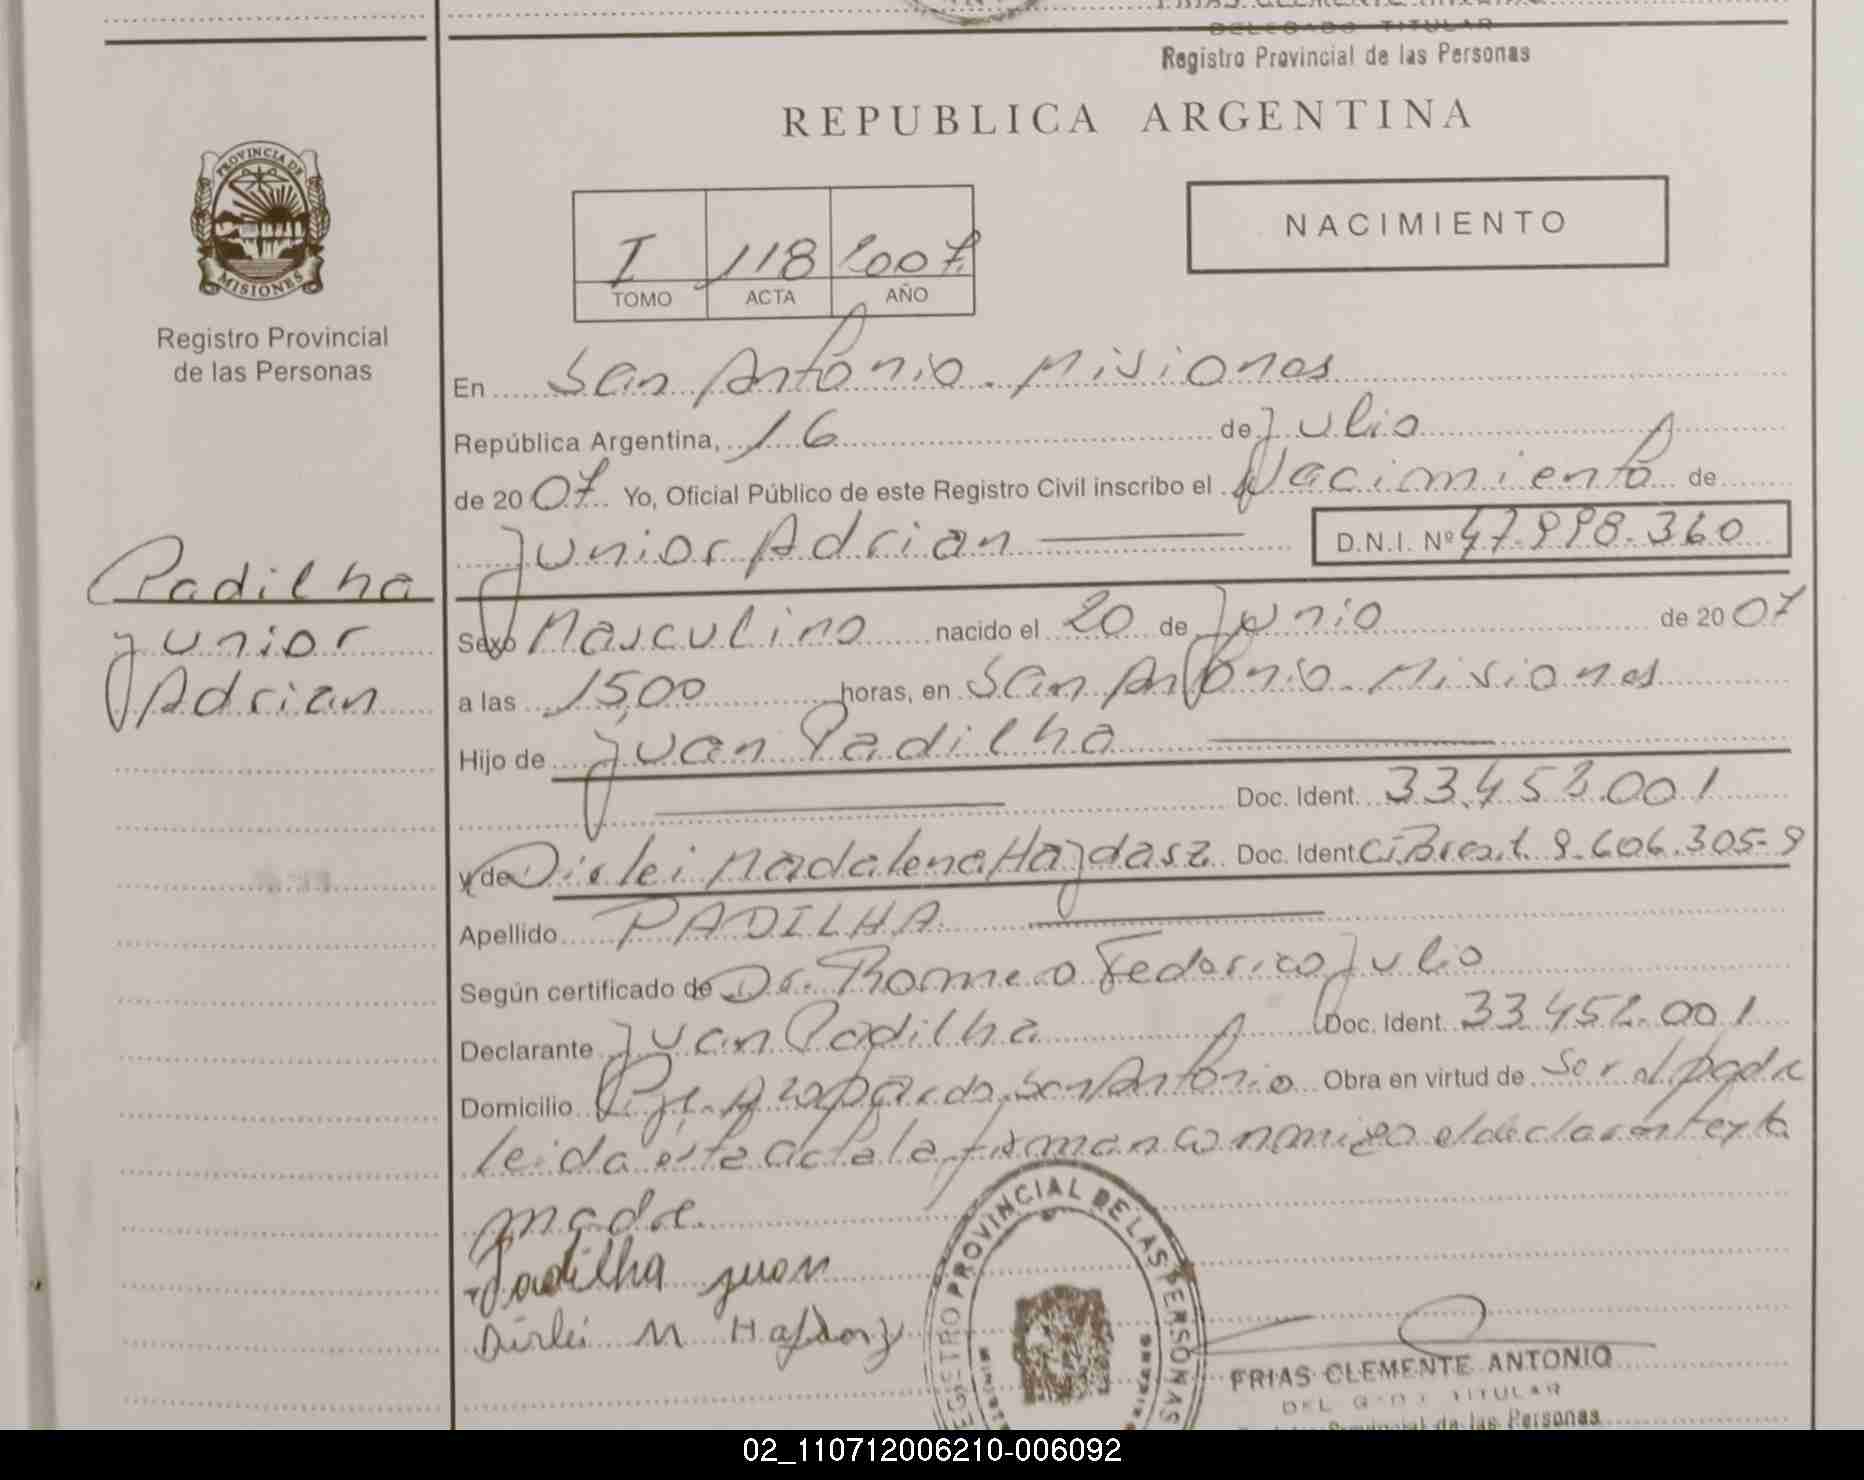 DELEGADO TITULAR
Registro Provincial de las Personas
REPUBLICA ARGENTINA
PROVINCIA DE
MISIONES
Registro Provincial
de las Personas
NACIMIENTO
I 118 2007
TOMO ACTA AÑO
En San Antonio. Misiones
República Argentina, 16 de Julio
de 2007 Yo, Oficial Público de este Registro Civil inscribo el Nacimiento de
Junior Adrian D.N.I. Nº 47.998.360
Padilha
Junior
Adrian
Sexo Masculino nacido el 20 de Junio de 2007
a las 15,00 horas, en San Antonio. Misiones
Hijo de Juan Padilha
Doc. Ident. 33.452.001
y de Dirlei Madalena Hajdasz Doc. Ident. C.I. Brasil. 9.606.305-9
Apellido PADILHA
Según certificado de Dr. Romero Federico Julio
Declarante Juan Padilha Doc. Ident. 33.452.001
Domicilio San Antonio Obra en virtud de Ser el padre
leida esta acta la firman conmigo el declarante y la
madre.
Padilha Juan
Dirlei M
REGISTRO PROVINCIAL DE LAS PERSONAS
FRIAS CLEMENTE ANTONIO
DELEGADO TITULAR
Registro Provincial de las Personas
02_110712006210-006092